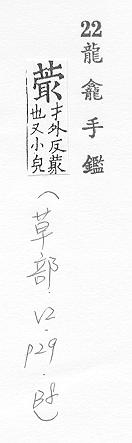 22龍龕手鑑
才外反藂
也又小皃
(草部.V2.P29.B8)